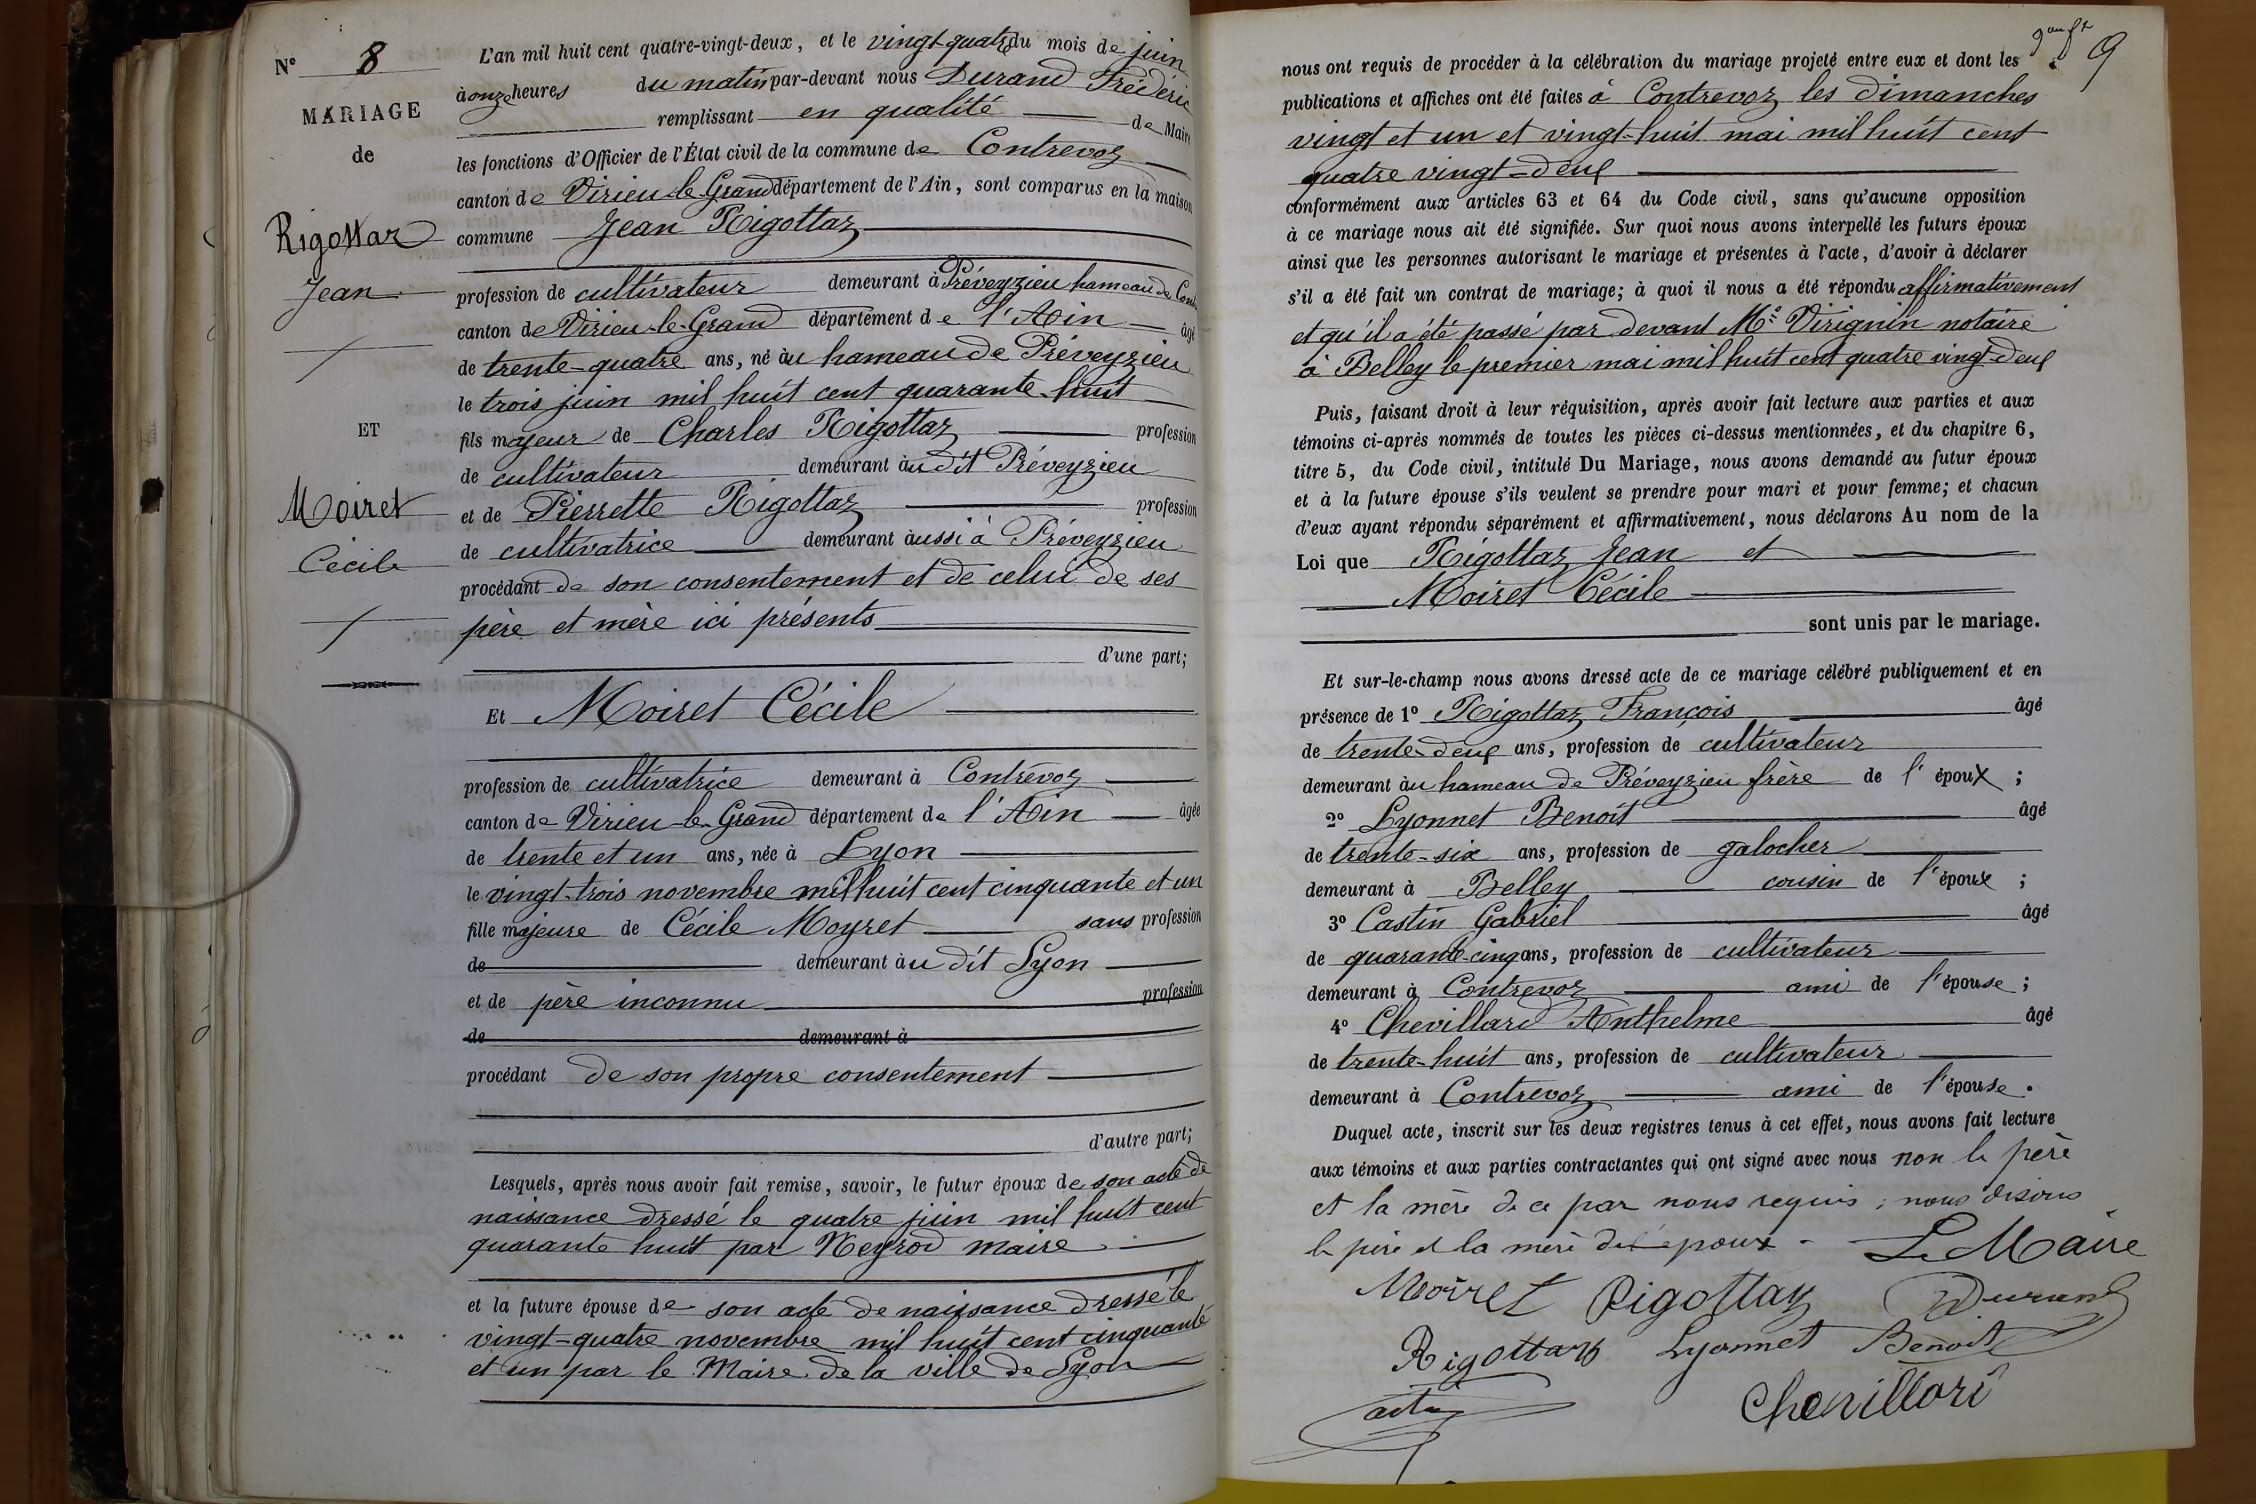 N° 8
MARIAGE
de
Rigottaz
Jean
ET
Moiret
Cécile
L'an mil huit cent quatre-vingt-deux, et le vingt-quatre du mois de juin
à onze heures du matin par-devant nous Durand Fréderic
remplissant en qualité de Maire
les fonctions d'Officier de l'État civil de la commune de Contrevoz
canton de Virieu-le-Grand département de l'Ain, sont comparus en la maison
commune Jean Rigottaz
profession de cultivateur demeurant à Préveyzieu hameau de
canton de Virieu-le-Grand département de l'Ain âgé
de trente-quatre ans, né au hameau de Préveyzieu
le trois juin mil huit cent quarante-huit
fils majeur de Charles Rigottaz profession
de cultivateur demeurant au dit Préveyzieu
et de Pierrette Rigottaz profession
de cultivatrice demeurant aussi à Préveyzieu
procédant de son consentement et de celui de ses
père et mère ici présents
d'une part;
Et Moiret Cécile
profession de cultivatrice demeurant à Contrevoz
canton de Virieu-le-Grand département de l'Ain âgée
de trente et un ans, née à Lyon
le vingt-trois novembre mil huit cent cinquante et un
fille majeure de Cécile Moyret sans profession
de demeurant au dit Lyon
et de père inconnu profession
de demeurant à
procédant de son propre consentement
d'autre part;
Lesquels, après nous avoir fait remise, savoir, le futur époux de son acte de
naissance dressé le quatre juin mil huit cent
quarante huit par Neyrod maire
et la future épouse de son acte de naissance dressé le
vingt-quatre novembre mil huit cent cinquante
et un par le Maire de la ville de Lyon
9
nous ont requis de procéder à la célébration du mariage projeté entre eux et dont les
publications et affiches ont été faites à Contrevoz les dimanches
vingt et un et vingt-huit mai mil huit cent
quatre vingt-deux
conformément aux articles 63 et 64 du Code civil, sans qu'aucune opposition
à ce mariage nous ait été signifiée. Sur quoi nous avons interpellé les futurs époux
ainsi que les personnes autorisant le mariage et présentes à l'acte, d'avoir à déclarer
s'il a été fait un contrat de mariage; à quoi il nous a été répondu affirmativement
et qu'il a été passé par devant Me Virignin notaire
à Belley le premier mai mil huit cent quatre vingt-deux
Puis, faisant droit à leur réquisition, après avoir fait lecture aux parties et aux
témoins ci-après nommés de toutes les pièces ci-dessus mentionnées, et du chapitre 6,
titre 5, du Code civil, intitulé Du Mariage, nous avons demandé au futur époux
et à la future épouse s'ils veulent se prendre pour mari et pour femme; et chacun
d'eux ayant répondu séparément et affirmativement, nous déclarons Au nom de la
Loi que Rigottaz Jean et
Moiret Cécile
sont unis par le mariage.
Et sur-le-champ nous avons dressé acte de ce mariage célébré publiquement et en
présence de 1° Rigottaz François âgé
de trente-deux ans, profession de cultivateur
demeurant au hameau de Préveyzieu frère de l'époux;
2° Lyonnet Benoît âgé
de trente-six ans, profession de galocher
demeurant à Belley cousin de l'époux;
3° Castin Gabriel âgé
de quarante-cinq ans, profession de cultivateur
demeurant à Contrevoz ami de l'épouse;
4° Chevillard Anthelme âgé
de trente-huit ans, profession de cultivateur
demeurant à Contrevoz ami de l'épouse.
Duquel acte, inscrit sur les deux registres tenus à cet effet, nous avons fait lecture
aux témoins et aux parties contractantes qui ont signé avec nous non le père
et la mère de ce par nous requis; nous disons
le père et la mère de l'époux. Le Maire
Moiret Rigottaz Durand
Rigottaz Lyonnet Benoît
Chevillard